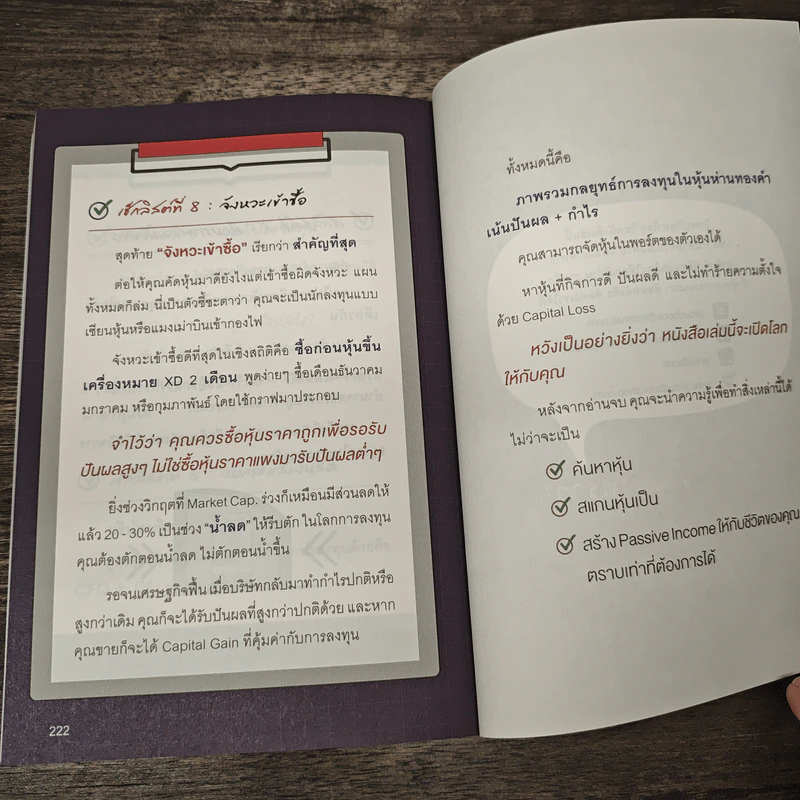 เช็กลิสต์ที่ 8 : จังหวะเข้าซื้อ
สุดท้าย “จังหวะเข้าซื้อ” เรียกว่า สำคัญที่สุด
ต่อให้คุณคัดหุ้นมาดียังไงแต่เข้าซื้อผิดจังหวะ แผน
ทั้งหมดก็ล่ม นี่เป็นตัวชี้ชะตาว่า คุณจะเป็นนักลงทุนแบบ
เซียนหุ้นหรือแมงเม่าบินเข้ากองไฟ
จังหวะเข้าซื้อดีที่สุดในเชิงสถิติคือ ซื้อก่อนหุ้นขึ้น
เครื่องหมาย XD 2 เดือน พูดง่ายๆ ซื้อเดือนธันวาคม
มกราคม หรือกุมภาพันธ์ โดยใช้กราฟมาประกอบ
จำไว้ว่า คุณควรซื้อหุ้นราคาถูกเพื่อรอรับ
ปันผลสูงๆ ไม่ใช่ซื้อหุ้นราคาแพงมารับปันผลต่ำๆ
ยิ่งช่วงวิกฤตที่ Market Cap. ร่วงก็เหมือนมีส่วนลดให้
แล้ว 20 - 30% เป็นช่วง “น้ำลด” ให้รีบตัก ในโลกการลงทุน
คุณต้องตักตอนน้ำลด ไม่ตักตอนน้ำขึ้น
รอจนเศรษฐกิจฟื้น เมื่อบริษัทกลับมาทำกำไรปกติหรือ
สูงกว่าเดิม คุณก็จะได้รับปันผลที่สูงกว่าปกติด้วย และหาก
คุณขายก็จะได้ Capital Gain ที่คุ้มค่ากับการลงทุน
222
ทั้งหมดนี้คือ
ภาพรวมกลยุทธ์การลงทุนในหุ้นห่านทองคำ
เน้นปันผล + กำไร
คุณสามารถจัดหุ้นในพอร์ตของตัวเองได้
หาหุ้นที่กิจการดี ปันผลดี และไม่ทำร้ายความตั้งใจ
ด้วย Capital Loss
หวังเป็นอย่างยิ่งว่า หนังสือเล่มนี้จะเปิดโลก
ให้กับคุณ
หลังจากอ่านจบ คุณจะนำความรู้เพื่อทำสิ่งเหล่านี้ได้
ไม่ว่าจะเป็น
ค้นหาหุ้น
สแกนหุ้นเป็น
สร้าง Passive Income ให้กับชีวิตของคุณ
ตราบเท่าที่ต้องการได้